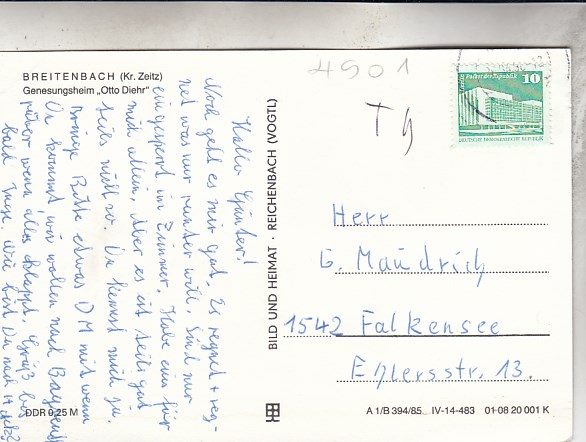 BREITENBACH (Kr. Zeitz)
Genesungsheim „Otto Diehr"
Hallo Günter!
Noch geht es mir gut, Es regnet + reg-
net was nur runter will. Sind nur
eingesperrt im Zimmer. Habe ein für
mich allein, Aber es ist teils gut
teils nicht so. Du kennst mich ja.
Bringe Bitte etwas DM mit wenn
Du kommst wir wollen nach Bayern
rüber wenn alles klappt. Grüß bis
bald Wie bist Du nach H
DDR 0,25 M
BILD UND HEIMAT · REICHENBACH (VOGTL)
4901
T 9
Palast der Republik
10
DEUTSCHE DEMOKRATISCHE REPUBLIK
Herr
G. Maudrich
1542 Falkensee
Ehlersstr. 13.
A 1/B 394/85 IV-14-483 01 08 20 001 K